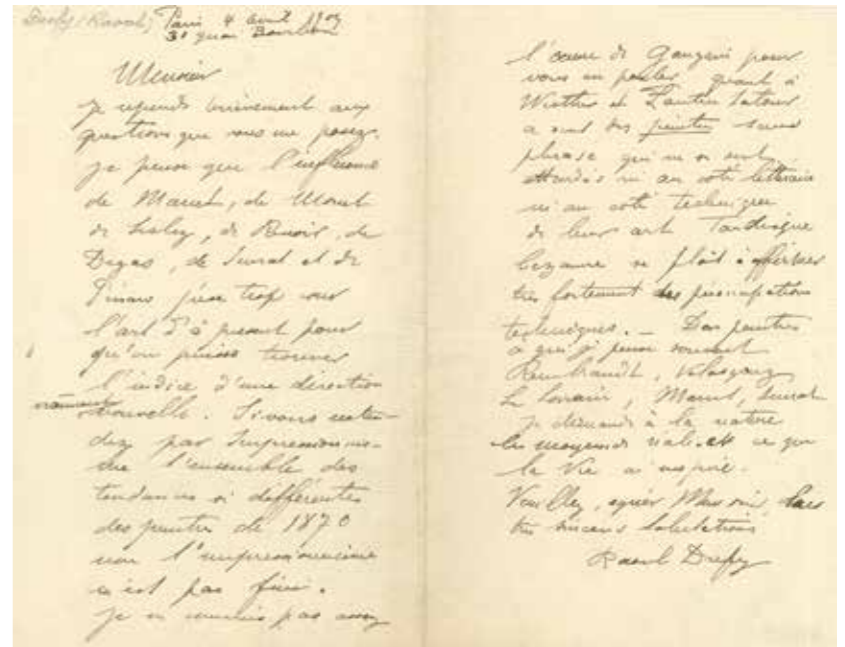 Paris 4 avril 1905
31 quai Bourbon
Monsieur
Je réponds brièvement aux
questions que vous me posez.
Je pense que l'influence
de Manet, de Monet
de Sisley, de Renoir, de
Degas, de Seurat et de
Pissaro pèse trop sur
l'art d'à présent pour
qu'on puisse trouver
l'indice d'une direction
vraiment nouvelle. Si vous enten-
dez par Impressionnis-
me l'ensemble des
tendances si différentes
des peintres de 1870
non l'impressionnisme
n'est pas fini.
Je ne connais pas assez
l'œuvre de Gauguin pour
vous en parler quant à
Wistler et Fantin Latour
ce sont des peintres sans
phrase qui ne se sont
attardés ni au coté littéraire
ni au coté technique
de leur art Tandisque
Cezanne se plait à affirmer
très fortement des préoccupations
techniques. – Des peintres
à qui je pense souvent
Rembrandt, Velasquez
Le Lorrain, Manet, Seurat
Je demande à la nature
les moyens de réaliser ce que
la Vie m'inspire.
Veuillez, agréer Monsieur, mes
très sincères Salutations
Raoul Dufy